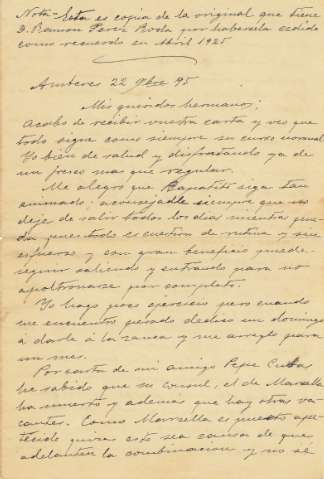 Nota- Esta es copia de la original que tiene
D. Ramon Perez Roda por habersela cedido
como recuerdo en Abril 1925
Amberes 22 9bre 95
Mis queridos hermanos;
Acabo de recibir vuestra carta y veo que
todo sigue como siempre su curso normal
Yo bien de salud y disfrutando ya de
un fresco mas que regular.
Me alegro que Papaito siga tan
animado; aconsejadle siempre que no
deje de salir todos los dias mientras pue-
da, pues todo es cuestion de rutina y sin
esfuerzo y con gran beneficio puede
seguir saliendo y entrando para no
apoltronarse por completo.
Yo hago poco ejercicio pero cuando
me encuentro pesado dedico un domingo
á darle á la zanca y me arreglo para
un mes.
Por carta de mi amigo Pepe Cubas
he sabido que su consul, el de Marsella
ha muerto y además que hay otras va-
cantes. Como Marsella es puesto ape-
tecido quizas esto sea causa de que
adelanten la combinacion, y no sé